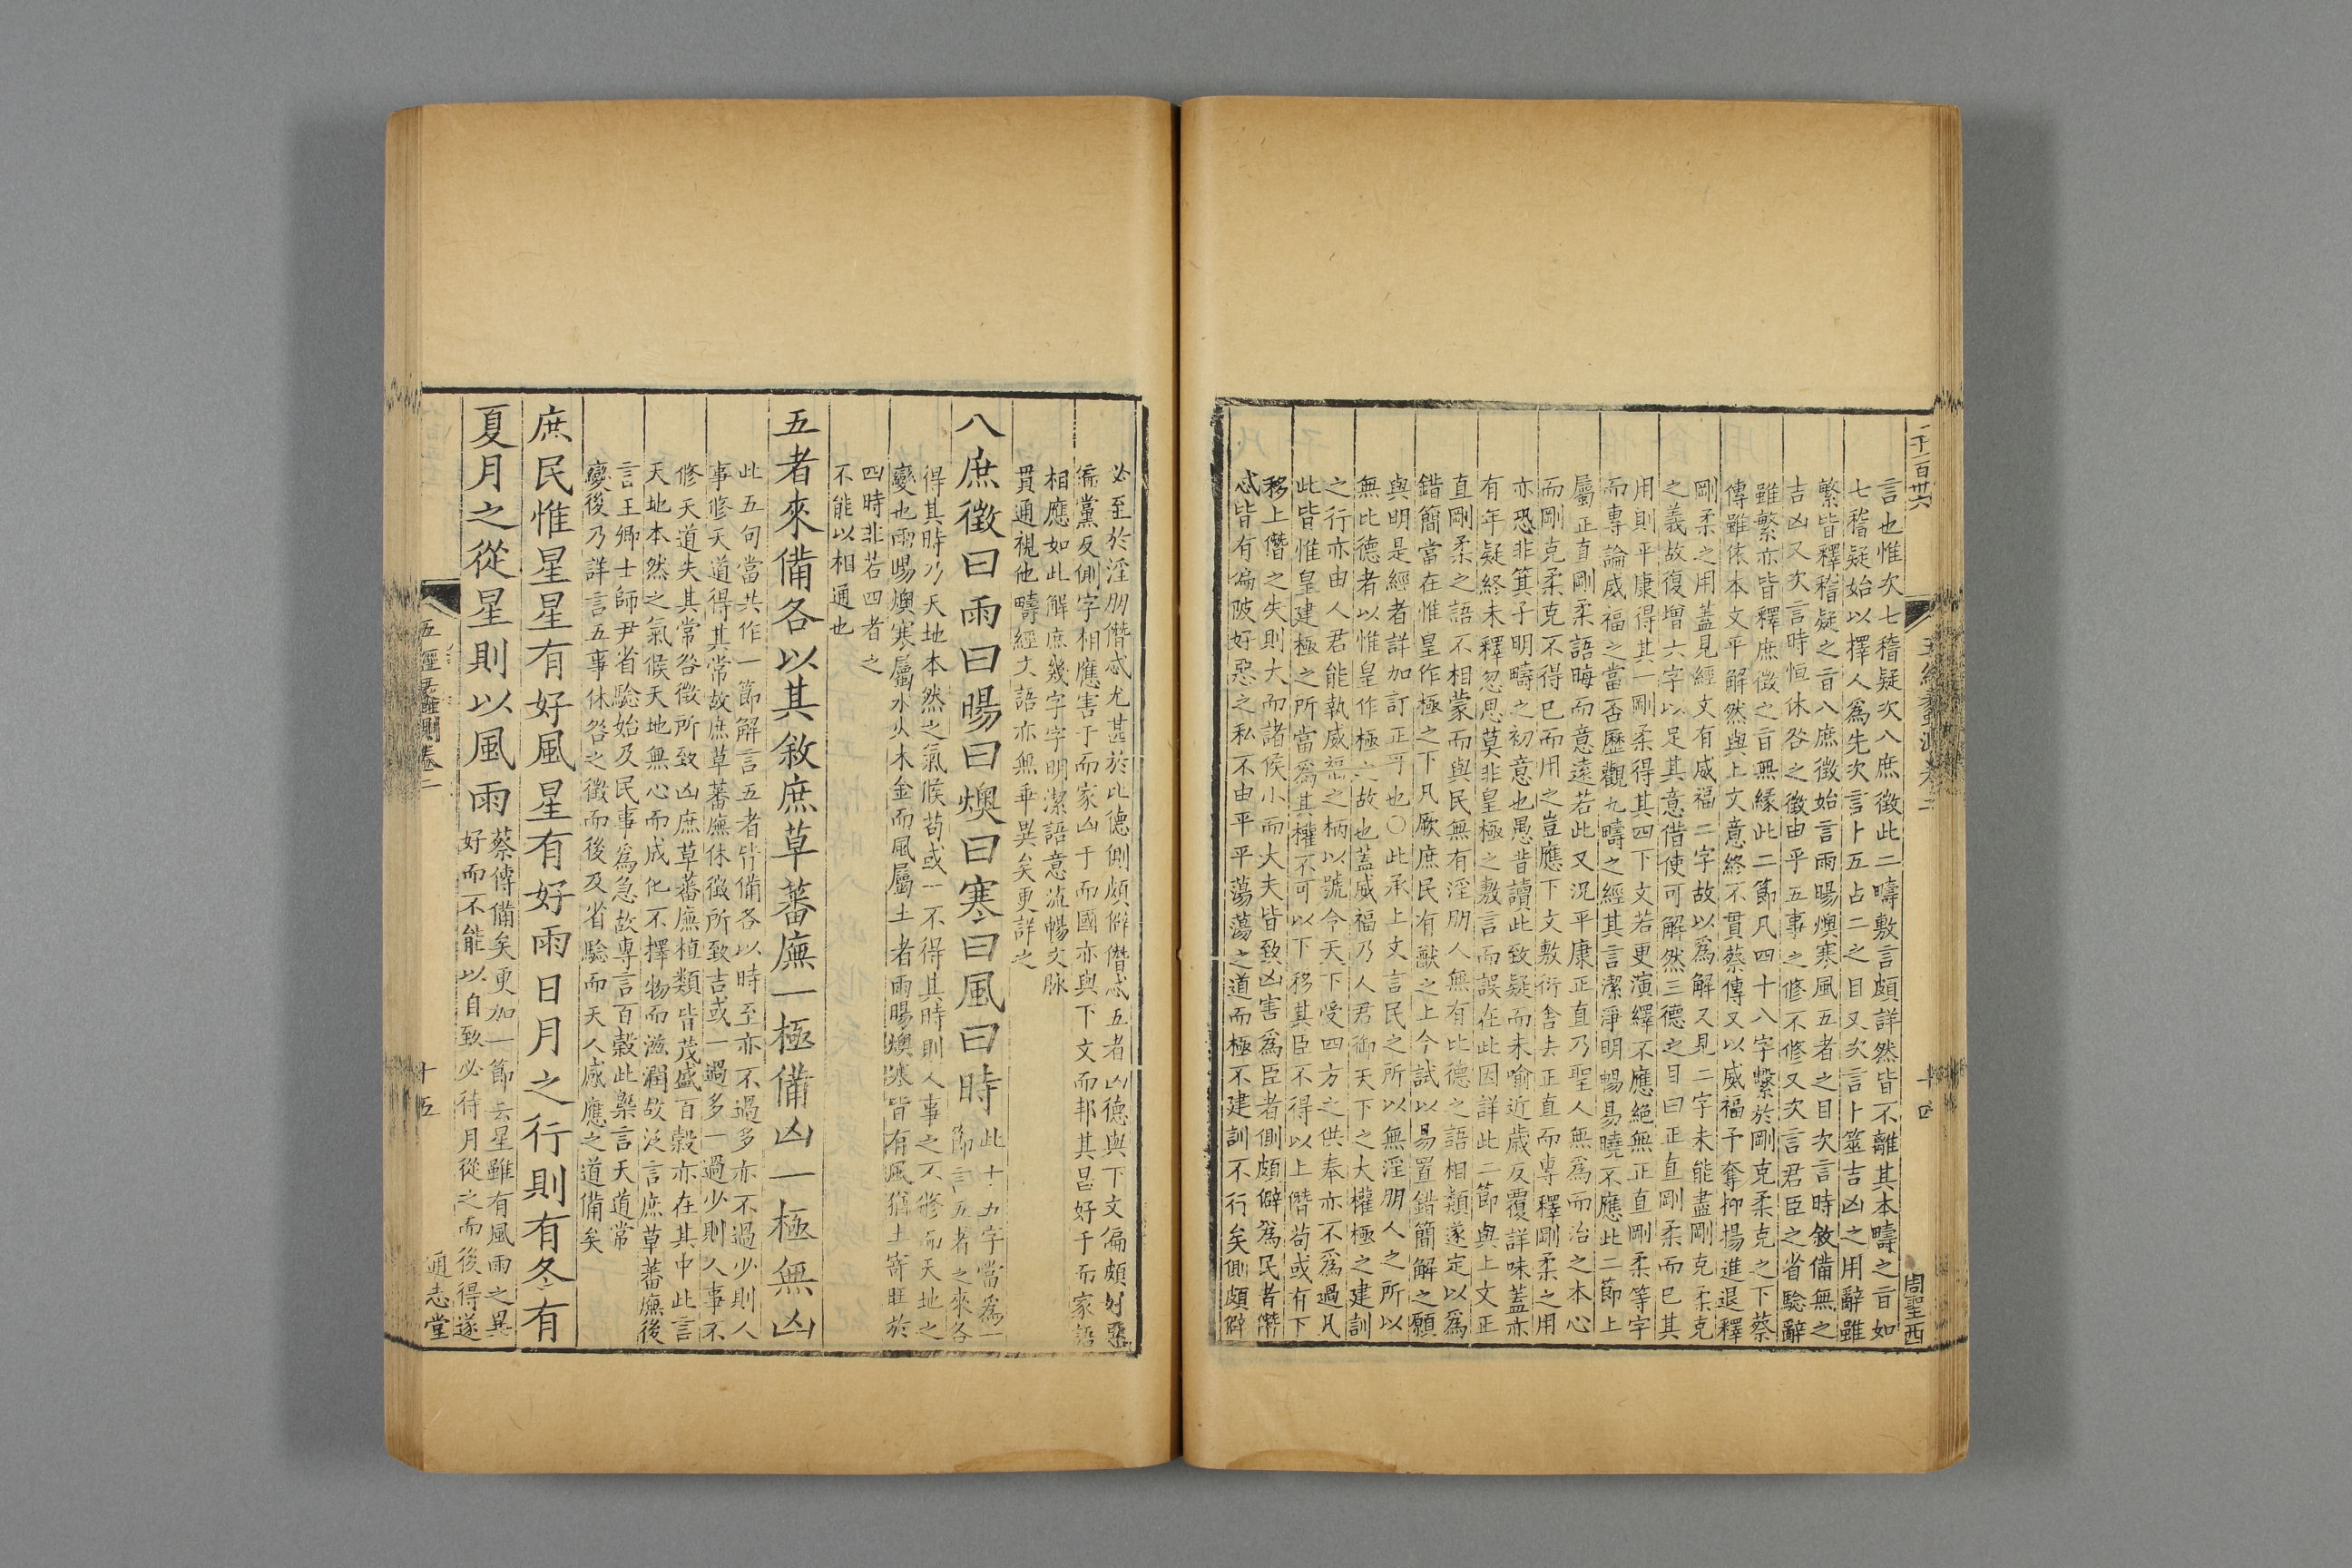 二千一百卅六
五經蠡測卷二
十四
周聖西
言也惟次七稽疑次八庶徵此二疇敷言頗詳然皆不離其本疇之旨如
七稽疑始以擇人爲先次言卜五占二之目又次言卜筮吉凶之用辭雖
繁皆釋稽疑之旨八庶徵始言雨暘燠寒風五者之目次言時敘備無之
吉凶又次言時恒休咎之徵由乎五事之修不修又次言君臣之省驗辭
雖繁亦皆釋庶徵之旨無緣此二節凡四十八字繫於剛克柔克之下蔡
傳雖依本文平解然與上文意終不貫蔡傳又以威福予奪抑揚進退釋
剛柔之用蓋見經文有威福二字故以爲解又見二字未能盡剛克柔克
之義故復增六字以足其意借使可解然三德之目曰正直剛柔而已其
用則平康得其一剛柔得其四下文若更演繹不應絕無正直剛柔等字
而專論威福之當否歷觀九疇之經其言潔淨明暢易曉不應此二節上
屬正直剛柔語晦而意遠若此又況平康正直乃聖人無爲而治之本心
而剛克柔克不得已而用之豈應下文敷衍舎去正直而專釋剛柔之用
亦恐非箕子明疇之初意也愚昔讀此致疑而未喻近歲反覆詳味蓋亦
有年疑終未釋忽思莫非皇極之敷言而誤在此因詳此二節與上文正
直剛柔之語不相蒙而與民無有淫朋人無有比德之語相類遂定以爲
錯簡當在惟皇作極之下凡厥庶民有猷之上今試以易置錯簡解之願
與明是經者詳加訂正可也○此承上文言民之所以無淫朋人之所以
無比德者以惟皇作極之故也蓋威福乃人君御天下之大權極之建訓
之行亦由人君能執威福之柄以號令天下受四方之供奉亦不爲過凡
此皆惟皇建極之所當爲其權不可以下移其臣不得以上僭苟或有下
移上僭之失則大而諸侯小而大夫皆致凶害爲臣者側頗僻爲民者僭
忒皆有偏陂好惡之私不由平平蕩蕩之道而極不建訓不行矣側頗僻
必至於淫朋僭忒尤甚於比德側頗僻僭忒五者凶德與下文偏頗好惡
偏黨反側字相應害于而家凶于而國亦與下文而邦其昌好于而家語
相應如此解庶幾字字明潔語意流暢文脉
貫通視他疇經文語亦無乖異矣更詳之
八庶徵曰雨曰暘曰燠曰寒曰風曰時
此十九字當爲一
節言五者之來各
得其時乃天地本然之氣候苟或一不得其時則人事之不修而天地之
變也雨暘燠寒屬水火木金而風屬土者雨暘燠寒皆有風猶土寄旺於
四時非若四者之
不能以相通也
五者來備各以其敘庶草蕃廡一極備凶一極無凶
此五句當共作一節解言五者皆備各以時至亦不過多亦不過少則人
事修天道得其常故庶草蕃廡休徵所致吉或一過多一過少則人事不
修天道失其常咎徵所致凶庶草蕃廡植類皆茂盛百穀亦在其中此言
天地本然之氣候天地無心而成化不擇物而滋潤故泛言庶草蕃廡後
言王卿士師尹省驗始及民事爲急故專言百穀此槩言天道常
變後乃詳言五事休咎之徵而後及省驗而天人感應之道備矣
庶民惟星星有好風星有好雨日月之行則有冬有
夏月之從星則以風雨
蔡傳備矣更加一節云星雖有風雨之異
好而不能以自致必待月從之而後得遂
五經蠡測卷二
十五
通志堂